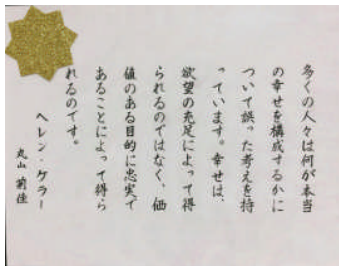 多くの人々は何が本当
の幸せを構成するかに
ついて誤った考えを持
っています。幸せは、
欲望の充足によって得
られるのではなく、価
値のある目的に忠実で
あることによって得ら
れるのです。
ヘレン・ケラー
丸山